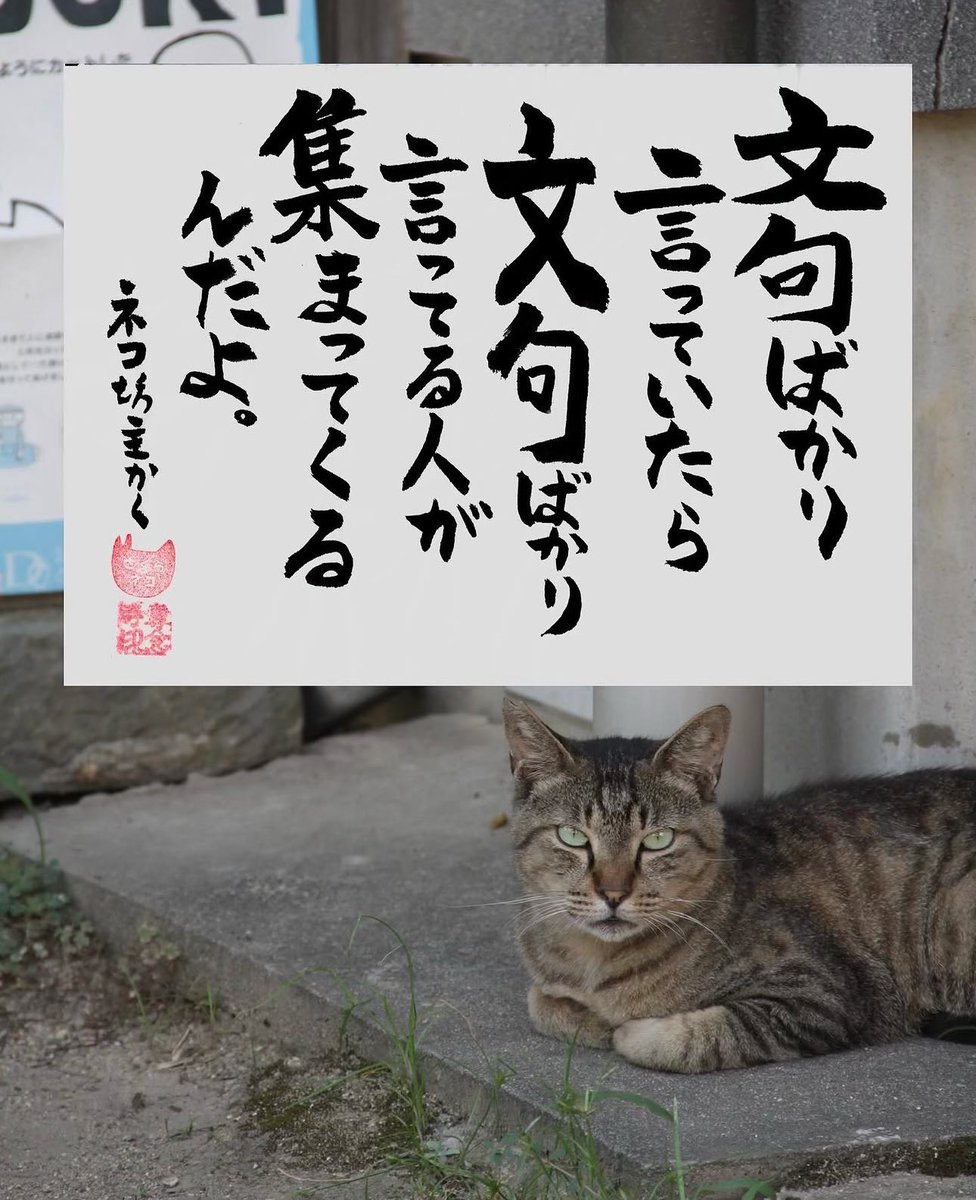 文句ばかり
言っていたら
文句ばかり
言ってる人が
集まってくる
んだよ。
ネコ坊主かく
ようにカットした